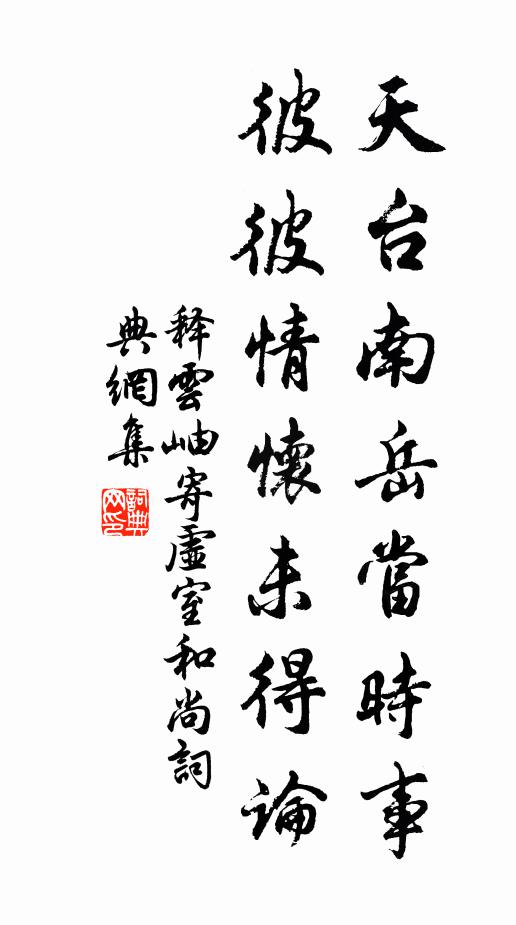 天台南岳當時事
彼彼情懷未得論
释雲岫寄虛室和尚詞
典網集
詞典
网印